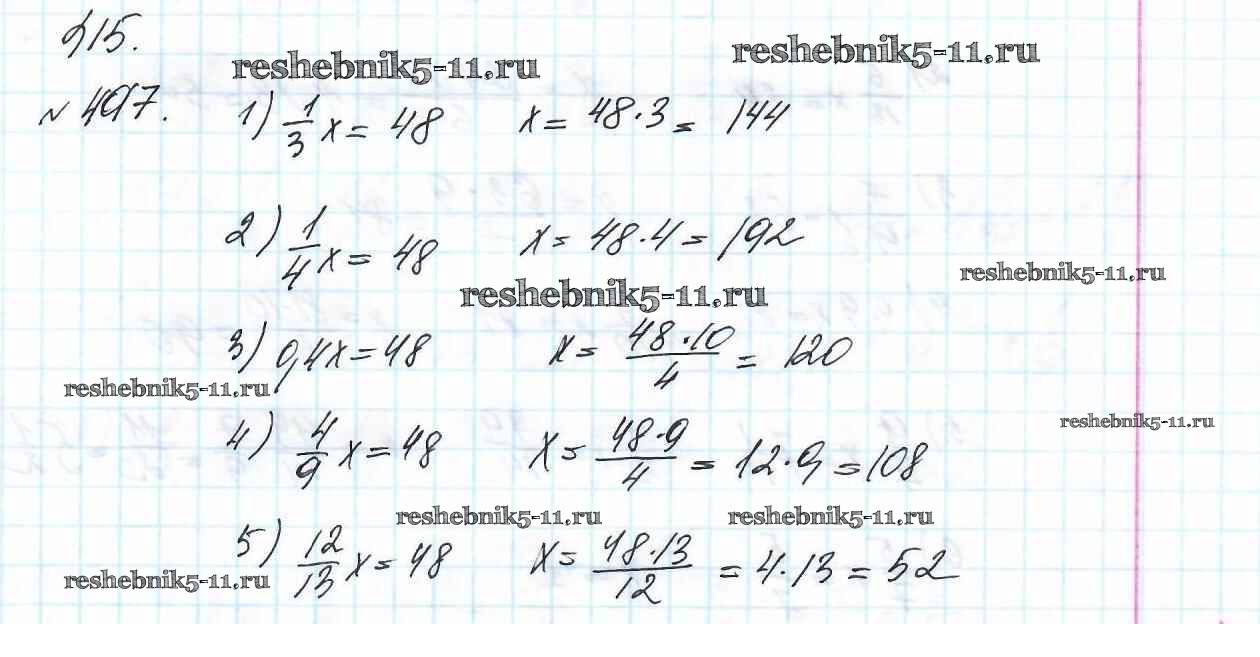 §15.
reshebnik5-11.ru reshebnik5-11.ru
№ 497. 1) 1/3 x = 48 x = 48·3 = 144
2) 1/4 x = 48 x = 48·4 = 192
reshebnik5-11.ru
reshebnik5-11.ru
3) 0,4x = 48 x = 48·10/4 = 120
reshebnik5-11.ru
reshebnik5-11.ru
4) 4/9 x = 48 x = 48·9/4 = 12·9 = 108
reshebnik5-11.ru reshebnik5-11.ru
5) 12/13 x = 48 x = 48·13/12 = 4·13 = 52
reshebnik5-11.ru